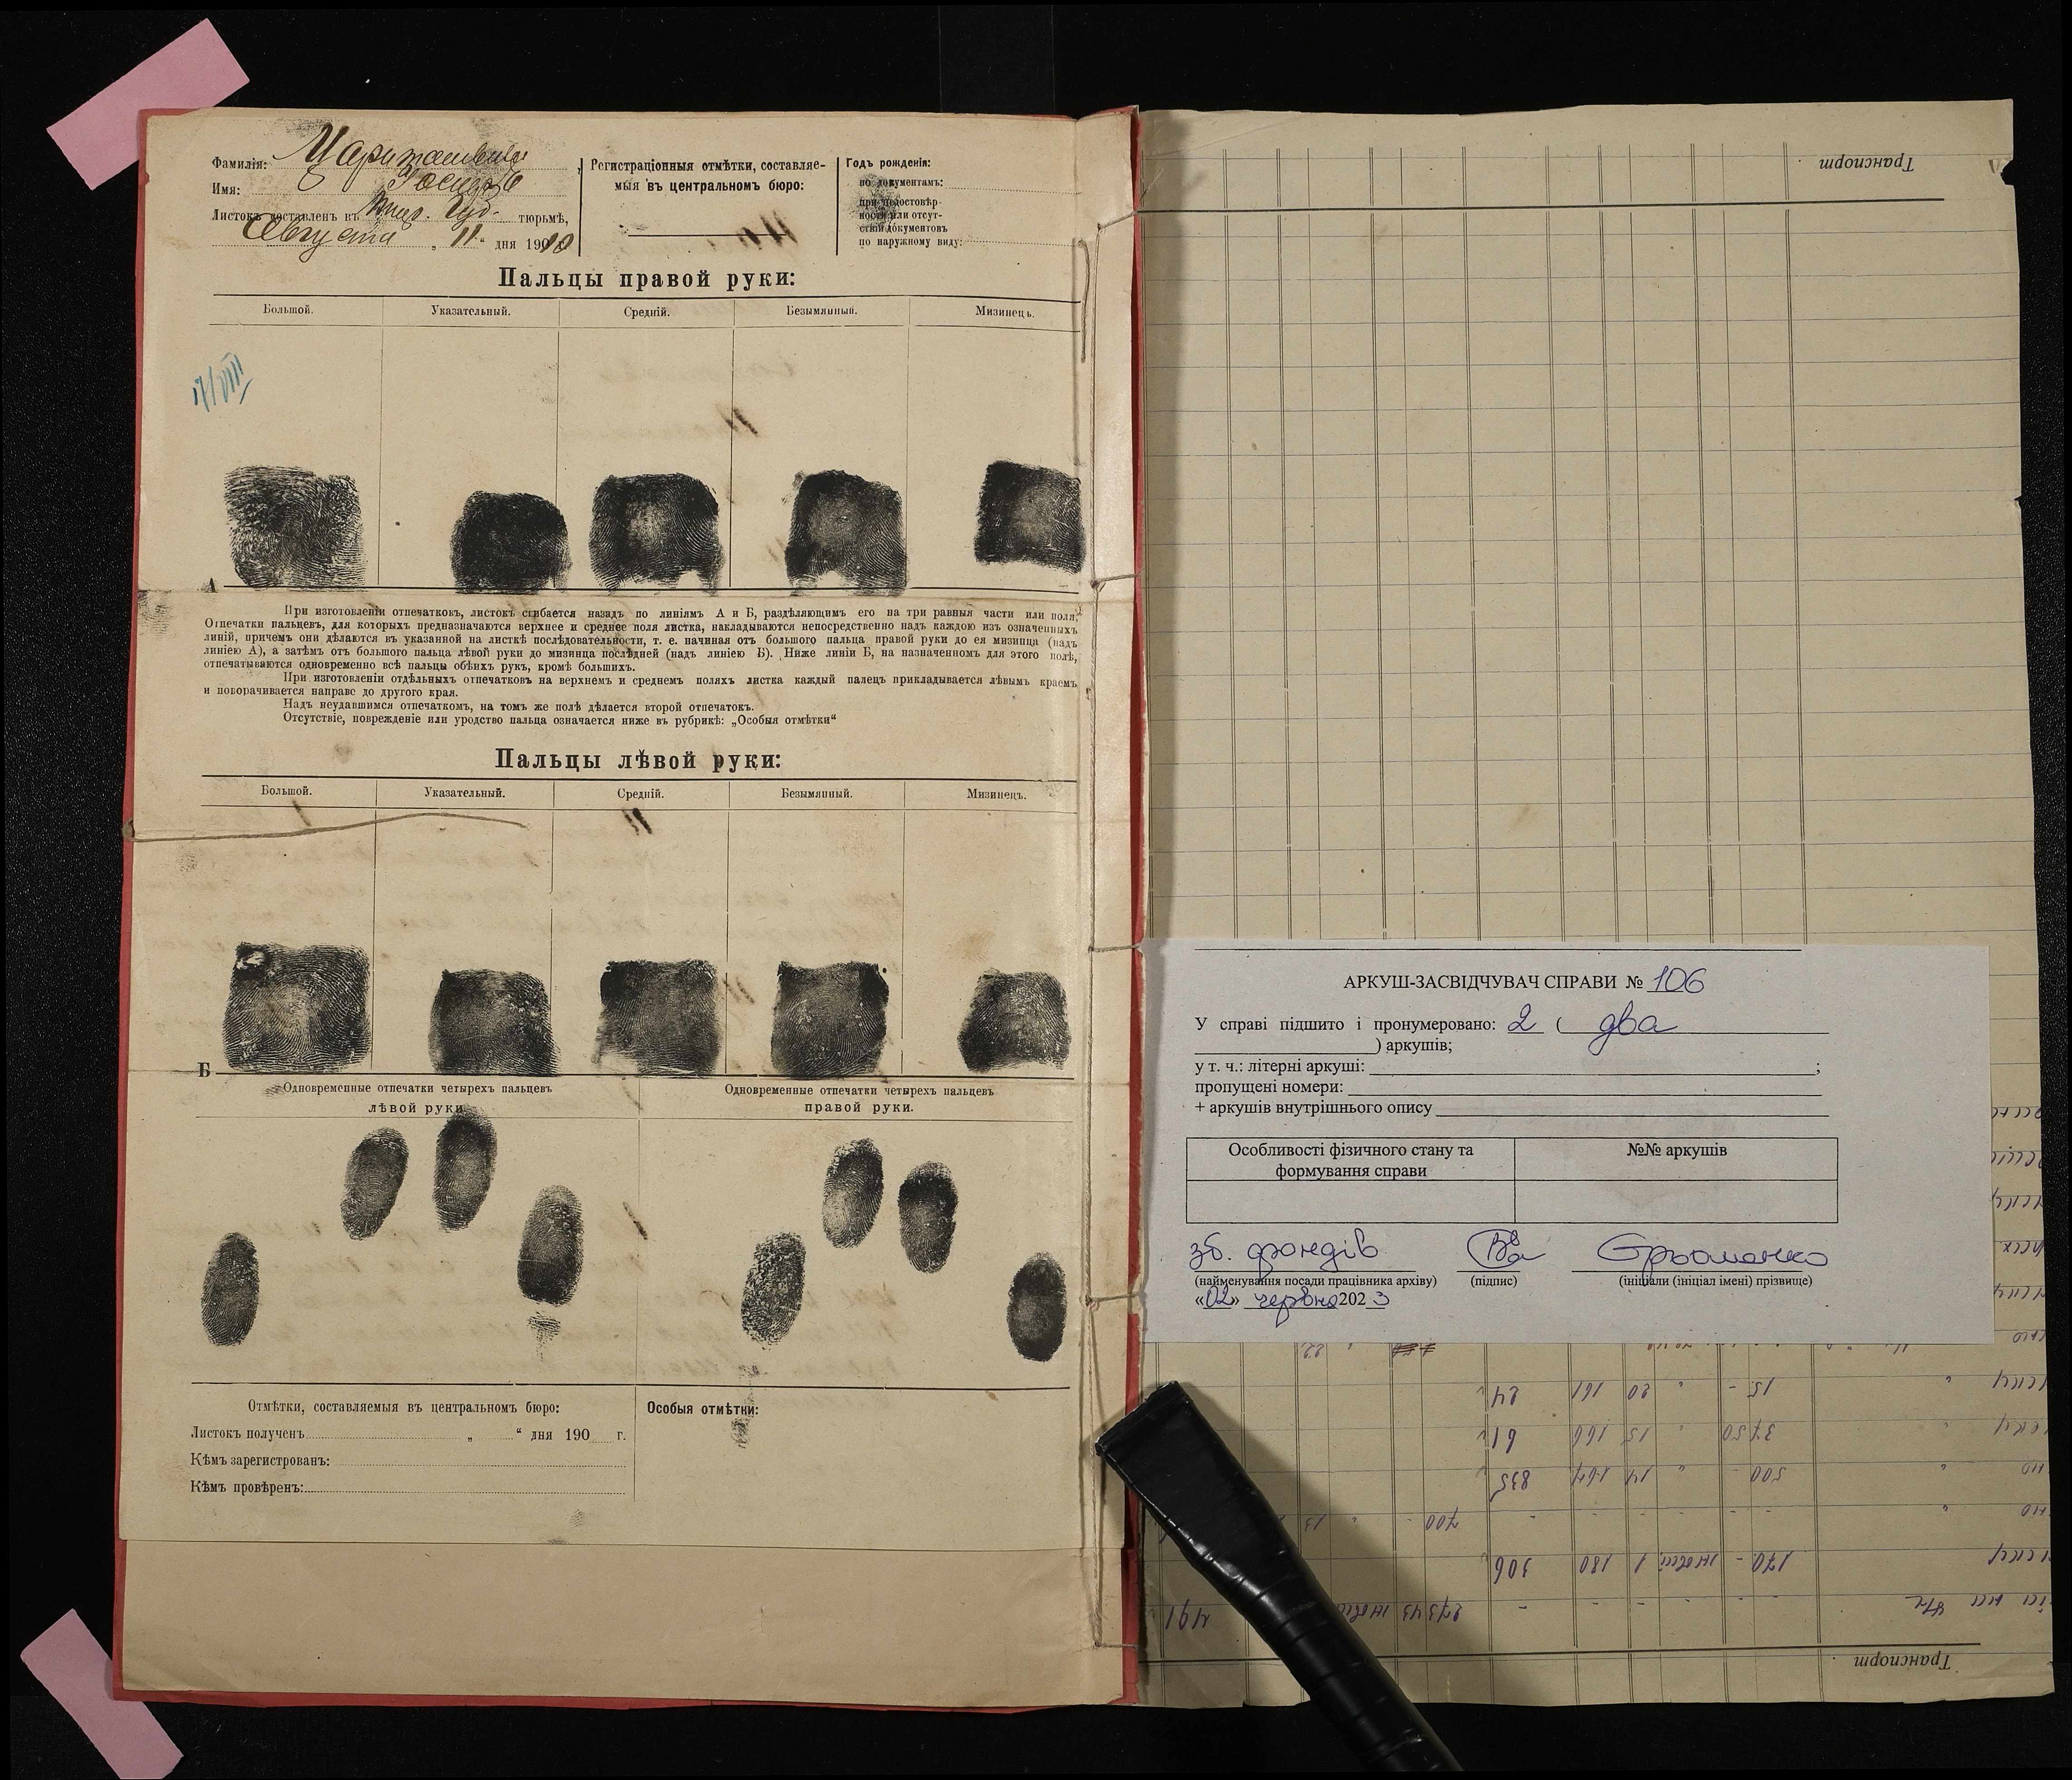 Фамилія:
Имя: Іосифъ
Листокъ составленъ въ губ. тюрьмѣ,
Августа „ 11 “ дня 1910
Регистраціонныя отмѣтки, составляе-
мыя въ центральномъ бюро:
Годъ рожденія:
по документамъ:
при недостовѣр-
ности или отсут-
ствіи документовъ
по наружному виду:
Пальцы правой руки:
Большой. Указательный. Средній. Безымянный. Мизинецъ.
17/VIII
А
При изготовленіи отпечатковъ, листокъ сгибается назадъ по линіямъ А и Б, раздѣляющимъ его на три равныя части или поля.
Отпечатки пальцевъ, для которыхъ предназначаются верхнее и среднее поля листка, накладываются непосредственно надъ каждою изъ означенныхъ
линій, причемъ они дѣлаются въ указанной на листкѣ послѣдовательности, т. е. начиная отъ большого пальца правой руки до ея мизинца (надъ
линіею А), а затѣмъ отъ большого пальца лѣвой руки до мизинца послѣдней (надъ линіею Б). Ниже линіи Б, на назначенномъ для этого полѣ,
отпечатываются одновременно всѣ пальцы обѣихъ рукъ, кромѣ большихъ.
При изготовленіи отдѣльныхъ отпечатковъ на верхнемъ и среднемъ поляхъ листка каждый палецъ прикладывается лѣвымъ краемъ
и поворачивается направо до другого края.
Надъ неудавшимся отпечаткомъ, на томъ же полѣ дѣлается второй отпечатокъ.
Отсутствіе, поврежденіе или уродство пальца означается ниже въ рубрикѣ: „Особыя отмѣтки“
Пальцы лѣвой руки:
Большой. Указательный. Средній. Безымянный. Мизинецъ.
Б
Одновременные отпечатки четырехъ пальцевъ
лѣвой руки.
Одновременные отпечатки четырехъ пальцевъ
правой руки.
Отмѣтки, составляемыя въ центральномъ бюро:
Листокъ полученъ „ “ дня 190 г.
Кѣмъ зарегистрованъ:
Кѣмъ провѣренъ:
Особыя отмѣтки:
Транспорт
АРКУШ-ЗАСВІДЧУВАЧ СПРАВИ № 106
У справі підшито і пронумеровано: 2 ( два
) аркушів;
у т. ч.: літерні аркуші: ;
пропущені номери:
+ аркушів внутрішнього опису
Особливості фізичного стану та
формування справи
№№ аркушів
зб. фондів
(найменування посади працівника архіву) (підпис) (ініціали (ініціал імені) прізвище)
«02» червня 2023
15 - " 20 161 24
37,50 " 15 166 61
500 - " 14 167 835
700 - " 13
170 - 1 180 306
27343 491
Транспорт